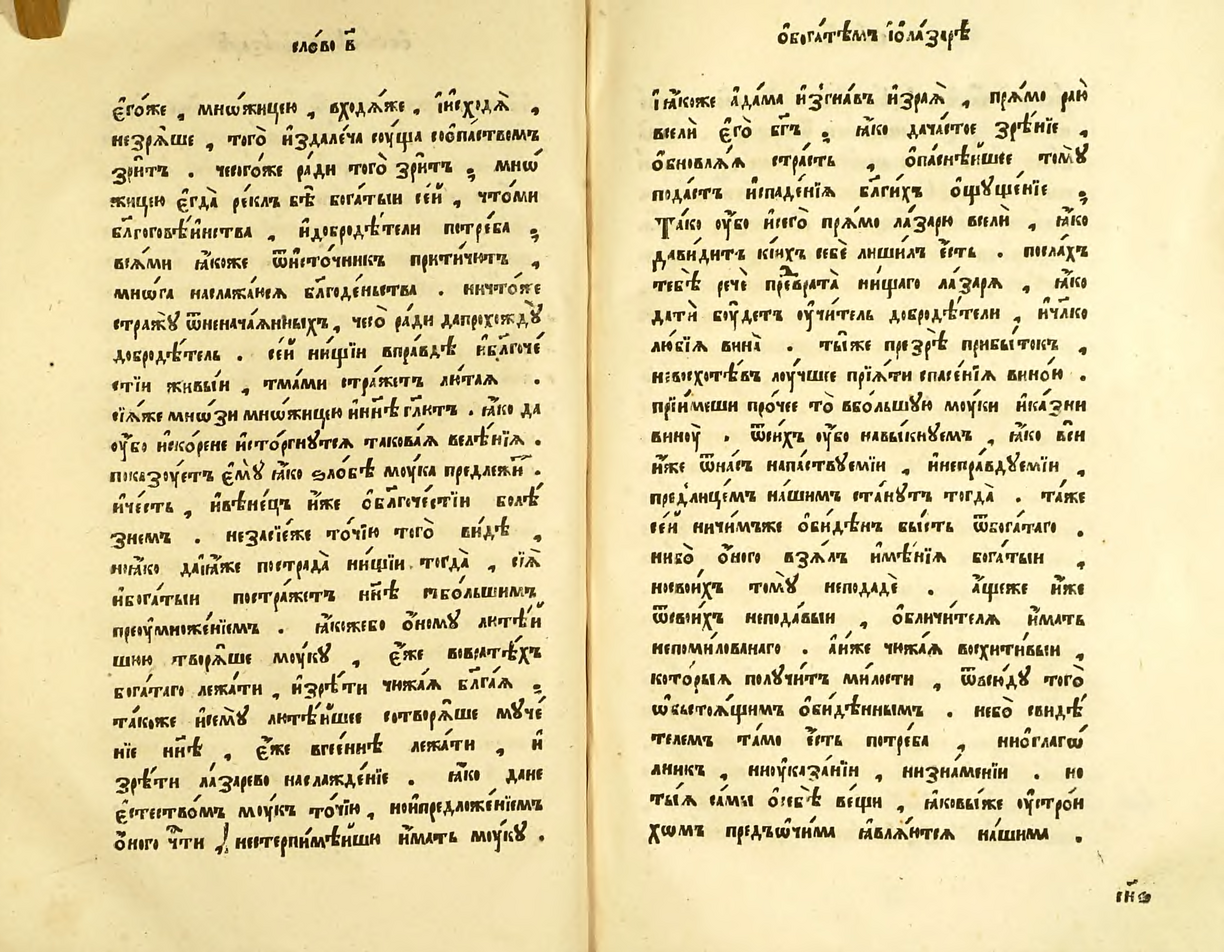 сло́во в҃
є҆го́же , мнѡ́жицею , вхо́дѧ́же , і҆и҆схо́дѧ̀ ,
незрѧ́ше , того̀ и҆здале́ча соу́ща соѻ҆па́ством
зри́тъ . чесого́же ра́ди того̀ зри́тъ ; мнѡ́
жицею є҆гда̀ ре́клъ бѣ̀ бога́тыи се́й , что́ми
бл҃гоговѣ́инства , и҆добродѣ́тели потре́ба ;
всѧ́ми ꙗ҆́коже ѿи҆сто́чникъ притичю́тъ ,
мнѡ́га наслажа́юсѧ бл҃годе́ньства . ничто́же
стра́жꙋ ѿненача́ѧнныхъ , чего̀ ра́ди дапрохождꙋ̀
добродѣ́тель . се́й ни́щїи впра́вдѣ и҆бл҃гоче́
стїи живы́и , тма́ми стра́жетъ лю́таѧ .
сїѧ́же мнѡ́зи мнѡ́жицею и҆нн҃ѣ гл҃ютъ . ꙗ҆́ко да
оу҆́бо и҆скорене и҆сто́ргнꙋтсѧ такова́ѧ веле́нїѧ .
показꙋ́етъ є҆мꙋ̀ ꙗ҆́ко ѕло́бѣ моу́ка предлежи́ .
и҆че́сть , и҆вѣне́цъ и҆́же ѻ҆бл҃гоче́стїи болѣ́
знемъ . незасїе́же то́чїю того̀ ви́дѣ ,
ноꙗ҆́ко даꙗ҆́же пострада̀ ни́щїи тогда̀ , сїѧ̀
и҆бога́тыи постра́жетъ нн҃ѣ сбо́льшимъ
преоу҆множе́нїемъ . ꙗ҆́кожебо ѻ҆́номꙋ лютѣ́и
шюю творѧ́ше моу́кꙋ , є҆́же вовратѣ́хъ
бога́таго лежа́ти , и҆зрѣ́ти чюжа́ѧ бл҃га́ѧ ;
та́коже и҆семꙋ̀ лютѣ́ишее сотворѧ́ше мꙋче́
нїе нн҃ѣ , є҆́же вгее́ннѣ лежа́ти , и҆
зрѣ́ти ла́зарево наслажде́нїе . ꙗ҆́ко дане
є҆стество́мъ моу́къ то́чїю , нои҆предложе́нїемъ
ѻ҆́ного чт҃и , нестерпимѣ́иши и҆́мать моу́кꙋ .
ѻ҆бога́тѣмъ і҆ѻ҆ла́зарѣ
і҆ꙗ҆́коже а҆да́ма и҆згна́въ и҆зраѧ̀ , прѧ́мо раю̀
вселѝ є҆го̀ бг҃ъ ; ꙗ҆́ко дача́стое зрѣ́нїе ,
ѻ҆бновлѧ́ѧ стра́сть , ѻ҆па́снѣишее томꙋ̀
пода́стъ и҆спаде́нїѧ бл҃ги́хъ ѻ҆щꙋще́нїе ;
Та́ко оу҆́бо и҆сего̀ прѧ́мо ла́зарю вселѝ , ꙗ҆́ко
дави́дитъ кі́ихъ себѐ лиши́лъ є҆́сть . посла́хъ
тебѣ̀ речѐ превра́та ни́щаго ла́зарѧ , ꙗ҆́ко
датѝ боу́детъ оу҆чи́тель добродѣ́тели , и҆чл҃ко
лю́бїѧ вина̀ . ты́же презрѣ̀ прибы́токъ ,
невосхотѣ́въ лоу́чшее прїѧ́ти спасе́нїѧ вино́ю .
прїи́меши про́чее то̀ вбо́льшꙋю моу́ки и҆ка́зни
виноу̀ . ѿси́хъ оу҆́бо навы́кнꙋемъ , ꙗ҆́ко вси
и҆́же ѿна́съ напа́ствꙋемїи , и҆непра́вдꙋемїи ,
пред̾лице́мъ на́шимъ ста́нꙋтъ тогда̀ . та́же
се́й ничи́мъже ѻ҆би́дѣнъ бы́сть ѿбога́таго .
нибо̀ ѻ҆́ного взѧ́лъ и҆мѣ́нїѧ бога́тыи ,
носвои́хъ томꙋ̀ неподадѐ . а҆́щеже и҆́же
ѿсвои́хъ непода́выи , ѻ҆бличи́телѧ и҆́мать
непоми́лованаго . а҆и҆́же чюжа́ѧ восхи́тивыи ,
кото́рыѧ полꙋ́читъ ми́лости , ѿвсю́дꙋ того̀
ѡ҆бьстоѧ́щимъ ѻ҆би́дѣннымъ . небо̀ свидѣ́
телемъ та́мо є҆́сть потре́ба , ниѻ҆глаго́
лникъ , ниоу҆каза́нїи , низна́менїи . но
ты́ѧ са́мы ѻ҆себѣ̀ ве́щи , ꙗ҆ковы́же оу҆стро́и
хѡмъ предъѻ҆чи́ма ꙗ҆влѧ́ютсѧ на́шима .